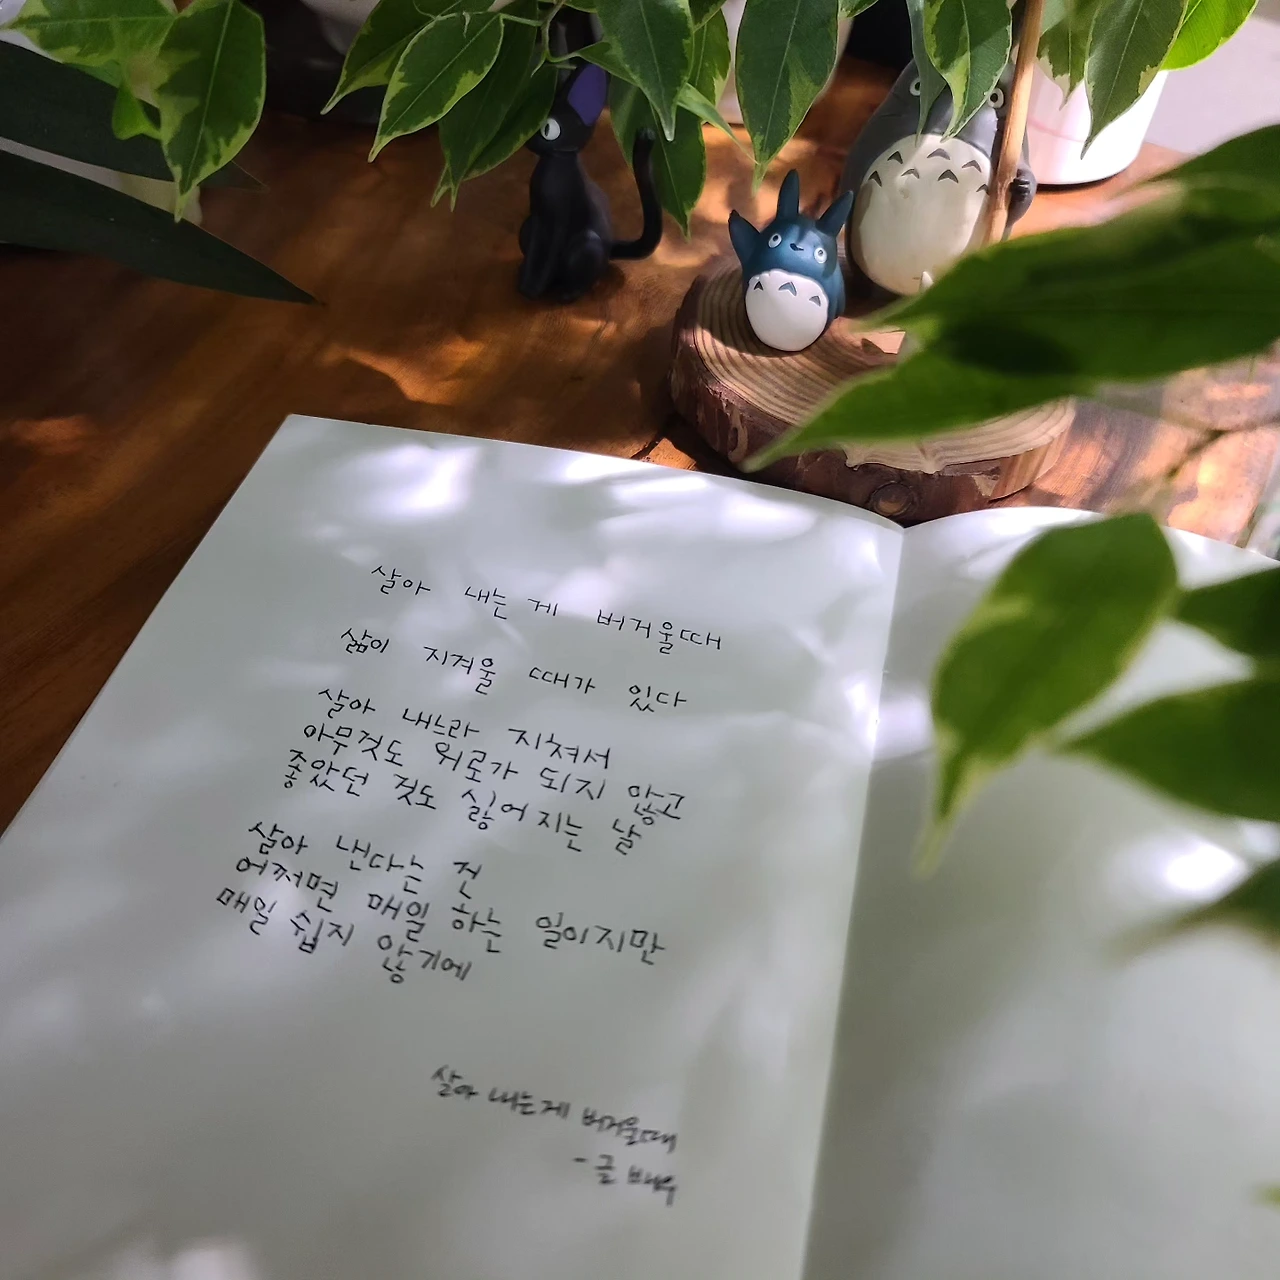 살아 내는 게 버거울때
삶이 지겨울 때가 있다
살아 내느라 지쳐서
아무것도 위로가 되지 않고
좋았던 것도 싫어 지는 날
살아 낸다는 건
어쩌면 매일 하는 일이지만
매일 쉽지 않기에
살아 내는게 버거울때
- 글 배우